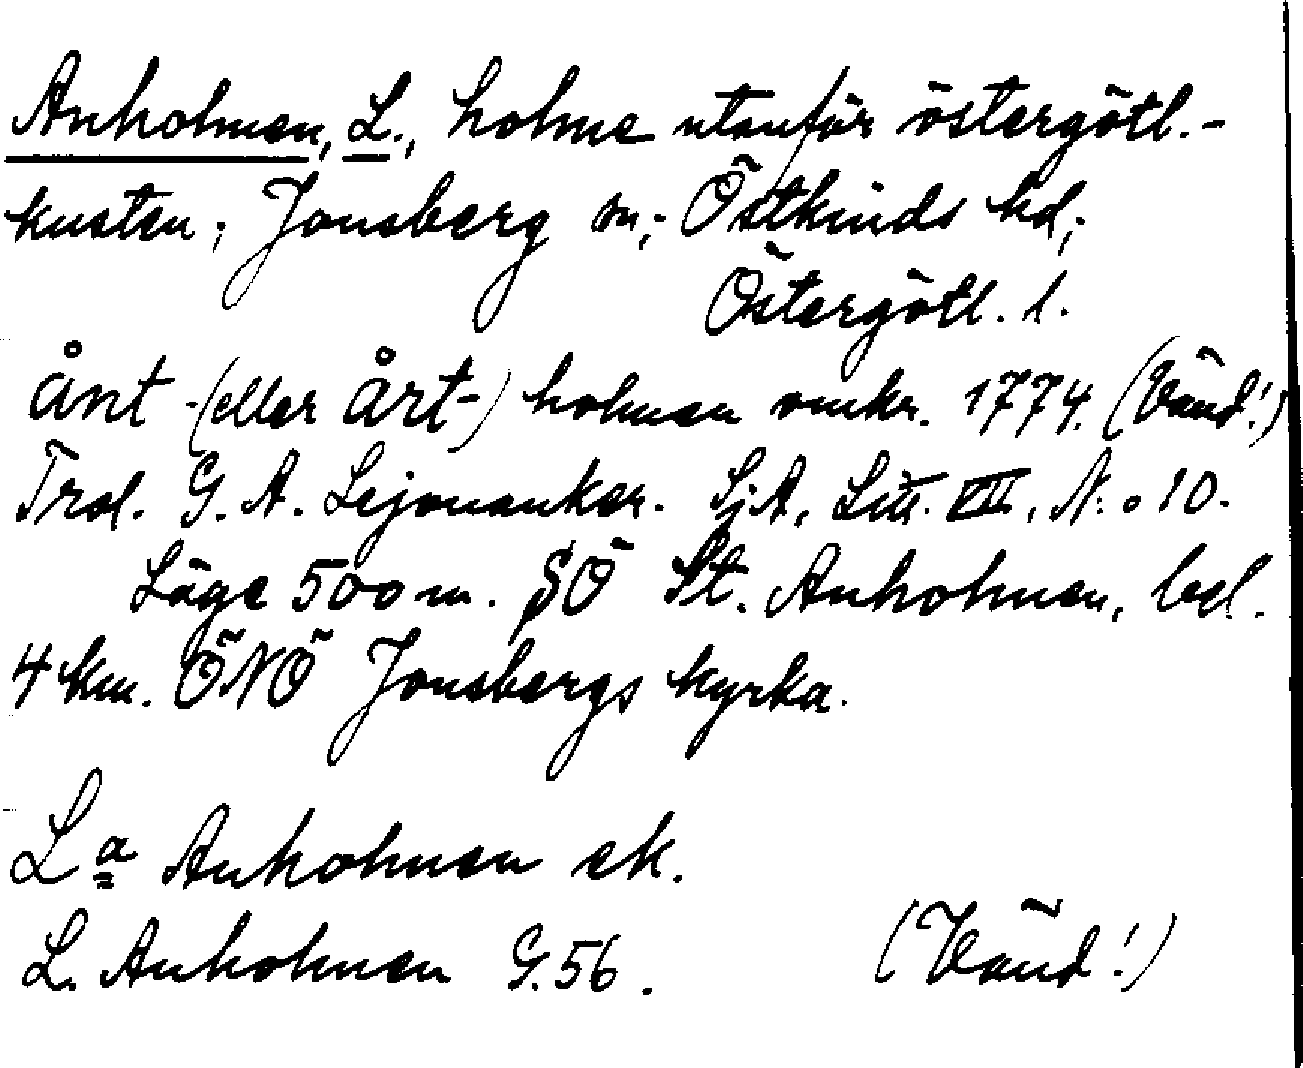 Anholmen, L., holme utanför östergötl.-
kusten; Jonsberg sn; Östkinds hd;
Östergötl. l.
Ånt -(eller Årt-) holmen omkr. 1774. (Vänd!)
Trol. G. A. Lejonanker. SjA, Litt. VIII, N:o 10.
Läge 500 m. SÖ St. Anholmen, bel.
4 km. ÖNÖ Jonsbergs kyrka.
La Anholmen ek.
L. Anholmen G. 56. (Vänd!)